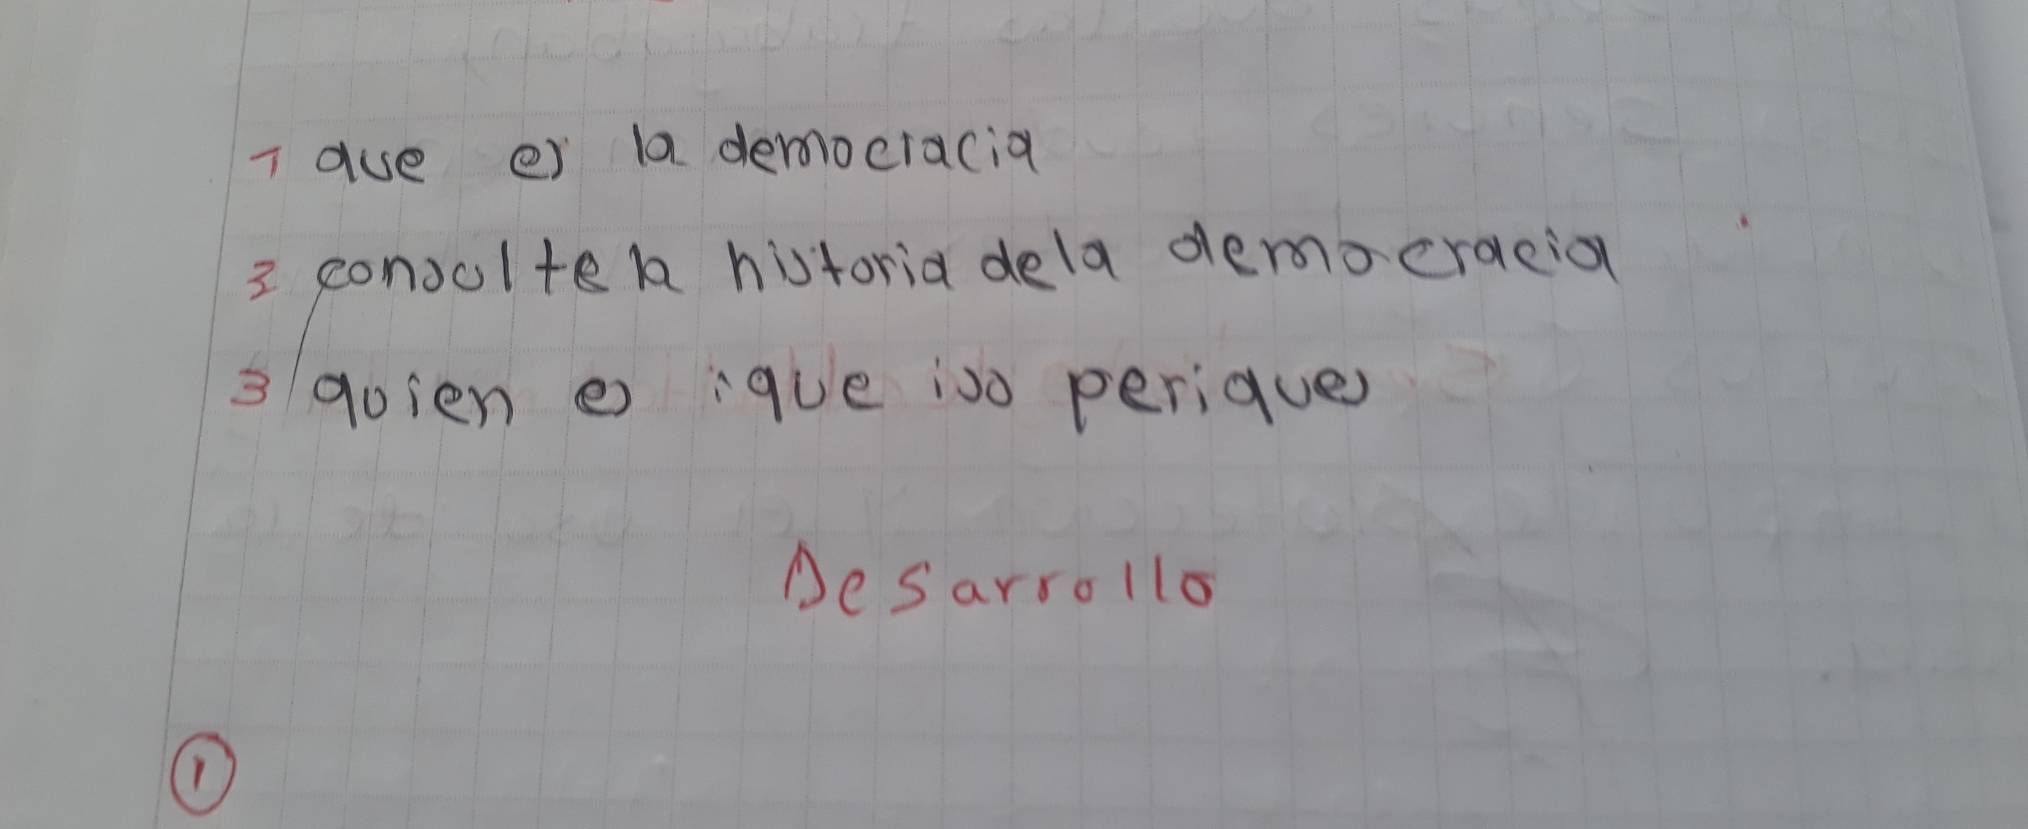 1 que es la democracia
2 consulte la historia dela democracia
3 quien es ique iso periques
Desarrollo
1